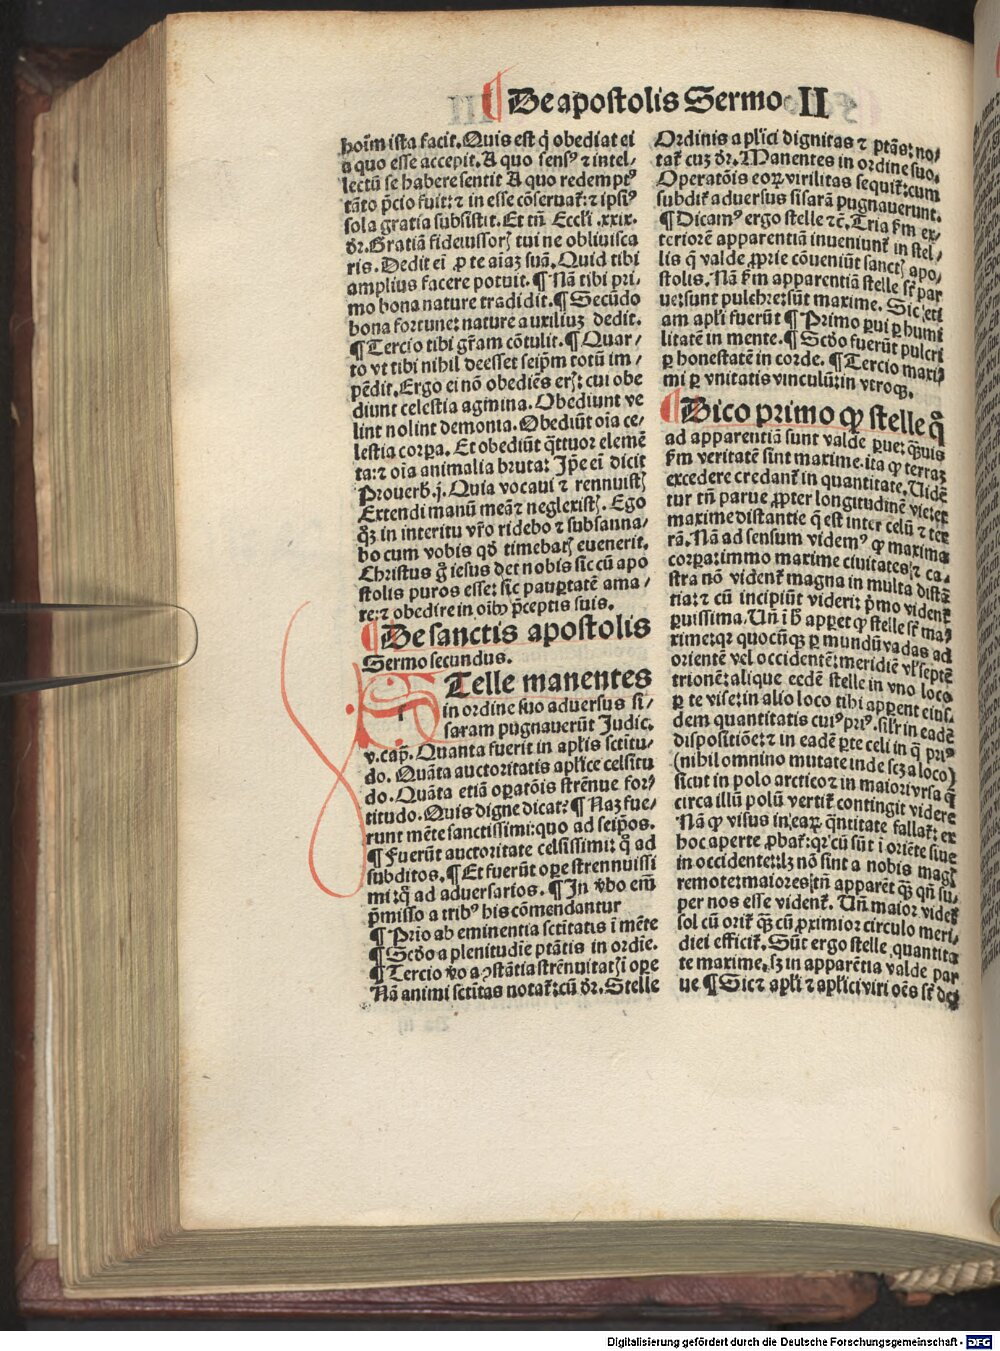 De apostolis Sermo II
hoīm ista facit. Quis est q̄ obediat ei
a quo esse accepit. A quo sensꝰ ⁊ intel⸗
lectū se habere sentit A quo redemptꝰ
tāto p̄cio fuit: ⁊ in esse cōseruat᷑: ⁊ ipsiꝰ
sola gratia subsistit. Et tñ Eccli .xxix.
dr̄. Gratiā fideiussorꝭ tui ne obliuisca
ris. Dedit eī ꝓ te aīaꝫ suā. Quid tibi
amplius facere potuit. ¶ Nā tibi pri⸗
mo bona nature tradidit. ¶ Secūdo
bona fortune: nature auxiliuꝫ dedit.
¶ Tercio tibi gr̄am cōtulit. ¶ Quar⸗
to vt tibi nihil deesset seip̄m totū im⸗
pēdit. Ergo ei nō obediēs erꝭ: cui obe
diunt celestia agmina. Obediunt ve
lint nolint demonia. Obediūt oīa ce⸗
lestia corꝑa. Et obediūt q̄ttuor elemē
ta: ⁊ oīa animalia bruta: Ip̄e eī dicit
Prouerb̄.j. Quia vocaui ⁊ rennuistꝭ
Extendi manū meā ⁊ neglexistꝭ. Ego
q̊ꝫ in interitu vr̄o ridebo ⁊ subsanna⸗
bo cum vobis qd̄ timebatꝭ euenerit.
Christus g̊ iesus det nobis sic cū apo
stolis puros esse: sic pauꝑtatē ama⸗
re: ⁊ obedire in oībꝰ p̄ceptis suis.
¶ De sanctis apostolis
Sermo secundus.
STelle manentes
in ordine suo aduersus si⸗
saram pugnauerūt Judic.
v. cap̄. Quanta fuerit in apl̄is sctitu⸗
do. Quāta auctoritatis apl̄ice celsitu
do. Quāta etiā oꝑatōis strēnue forꝰ
titudo. Quis digne dicat? ¶ Naꝫ fue⸗
runt mēte sanctissimi: quo ad seip̄os.
¶ Fuerūt auctoritate celsissimi: q̊ ad
subditos. ¶ Et fuerūt oꝑe strennuissi
mi: q̊ ad aduersarios. ¶ In v̓bo em̄
p̄misso a tribꝰ his cōmendantur
¶ Prīo ab eminentia sctītatis ī mēte
¶ Scd̄o a plenitudīe ptātis in ordīe.
¶ Tercio v̓o a ꝯstātia strēnuitatꝭ ī oꝑe
Nā animi sctītas notat᷑: cū dr̄. Stelle
Ordinis apl̄ici dignitas ⁊ ptās: no⸗
tat᷑ cuꝫ dr̄. Manentes in ordine suo.
Operatōis eoꝝ virilitas sequit᷑: cum
subdit᷑ aduersus sisarā pugnauerunt.
¶ Dicamꝰ ergo stelle ⁊c̄. Tria ẜm ex⸗
teriorē apparentiā inueniunt᷑ in stel⸗
lis q̄ valde ꝓprie cōueniūt sanctꝭ apo⸗
stolis. Nā ẜm apparentiā stelle sr̄ par
ue: sunt pulchre: sūt maxime. Sic eti
am apl̄i fuerūt ¶ Primo ꝑui ꝑ humi
litatē in mente. ¶ Scd̄o fuerūt pulcri
ꝑ honestatē in corde. ¶ Tercio maxi⸗
mi ꝑ vnitatis vinculū: in vtroqꝫ.
¶ Dico primo ꝙ stelle q̊
ad apparentiā sunt valde ꝑue: q̄ꝫuis
ẜm veritatē sint maxime. ita ꝙ terraꝫ
excedere credant᷑ in quantitate. Vidē
tur tñ parue ꝓpter longitudinē vie: et
maxime distantie q̄ est inter celū ⁊ ter
rā. Nā ad sensum videmꝰ ꝙ maxima
corꝑa: immo maxime ciuitates: ⁊ ca⸗
stra nō vident᷑ magna in multa distā
tia: ⁊ cū incipiūt videri: p̄mo vident᷑
ꝑuissima. Vn̄ ī h̄ apꝑet ꝙ stelle sr̄ ma⸗
xime: qr quocūqꝫ ꝑ mundū vadas ad
orientē vel occidentē: meridiē vl̓ septē
trionē: alique eedē stelle in vno loco
ꝑ te vise: in alio loco tibi apꝑent eius⸗
dem quantitatis cuiꝰ priꝰ. sil̓r in eadē
dispositiōe: ⁊ in eadē ꝑte celi in q̄ priꝰ
(nihil omnino mutate inde scꝫ a loco)
sicut in polo arctico ⁊ in maiori vrsa q̄
circa illū polū vertit᷑ contingit videre
Nā ꝙ visus in eaꝝ q̄ntitate fallat᷑: ex
hoc aperte ꝓbat᷑: qr cū sūt ī oriēte siue
in occidente: lꝫ nō sint a nobis magꝭ
remote: maiores tñ apparēt q̄ꝫ qn̄ su⸗
per nos esse vident᷑. Vn̄ maior videt᷑
sol cū orit᷑ q̄ꝫ cū ꝓximior circulo meri⸗
diei efficit᷑. Sūt ergo stelle quantita
te maxime. sꝫ in apparētia valde par
ue ¶ Sic ⁊ apl̄i ⁊ apl̄ici viri oēs sr̄ de
Digitalisierung gefördert durch die Deutsche Forschungsgemeinschaft - DFG